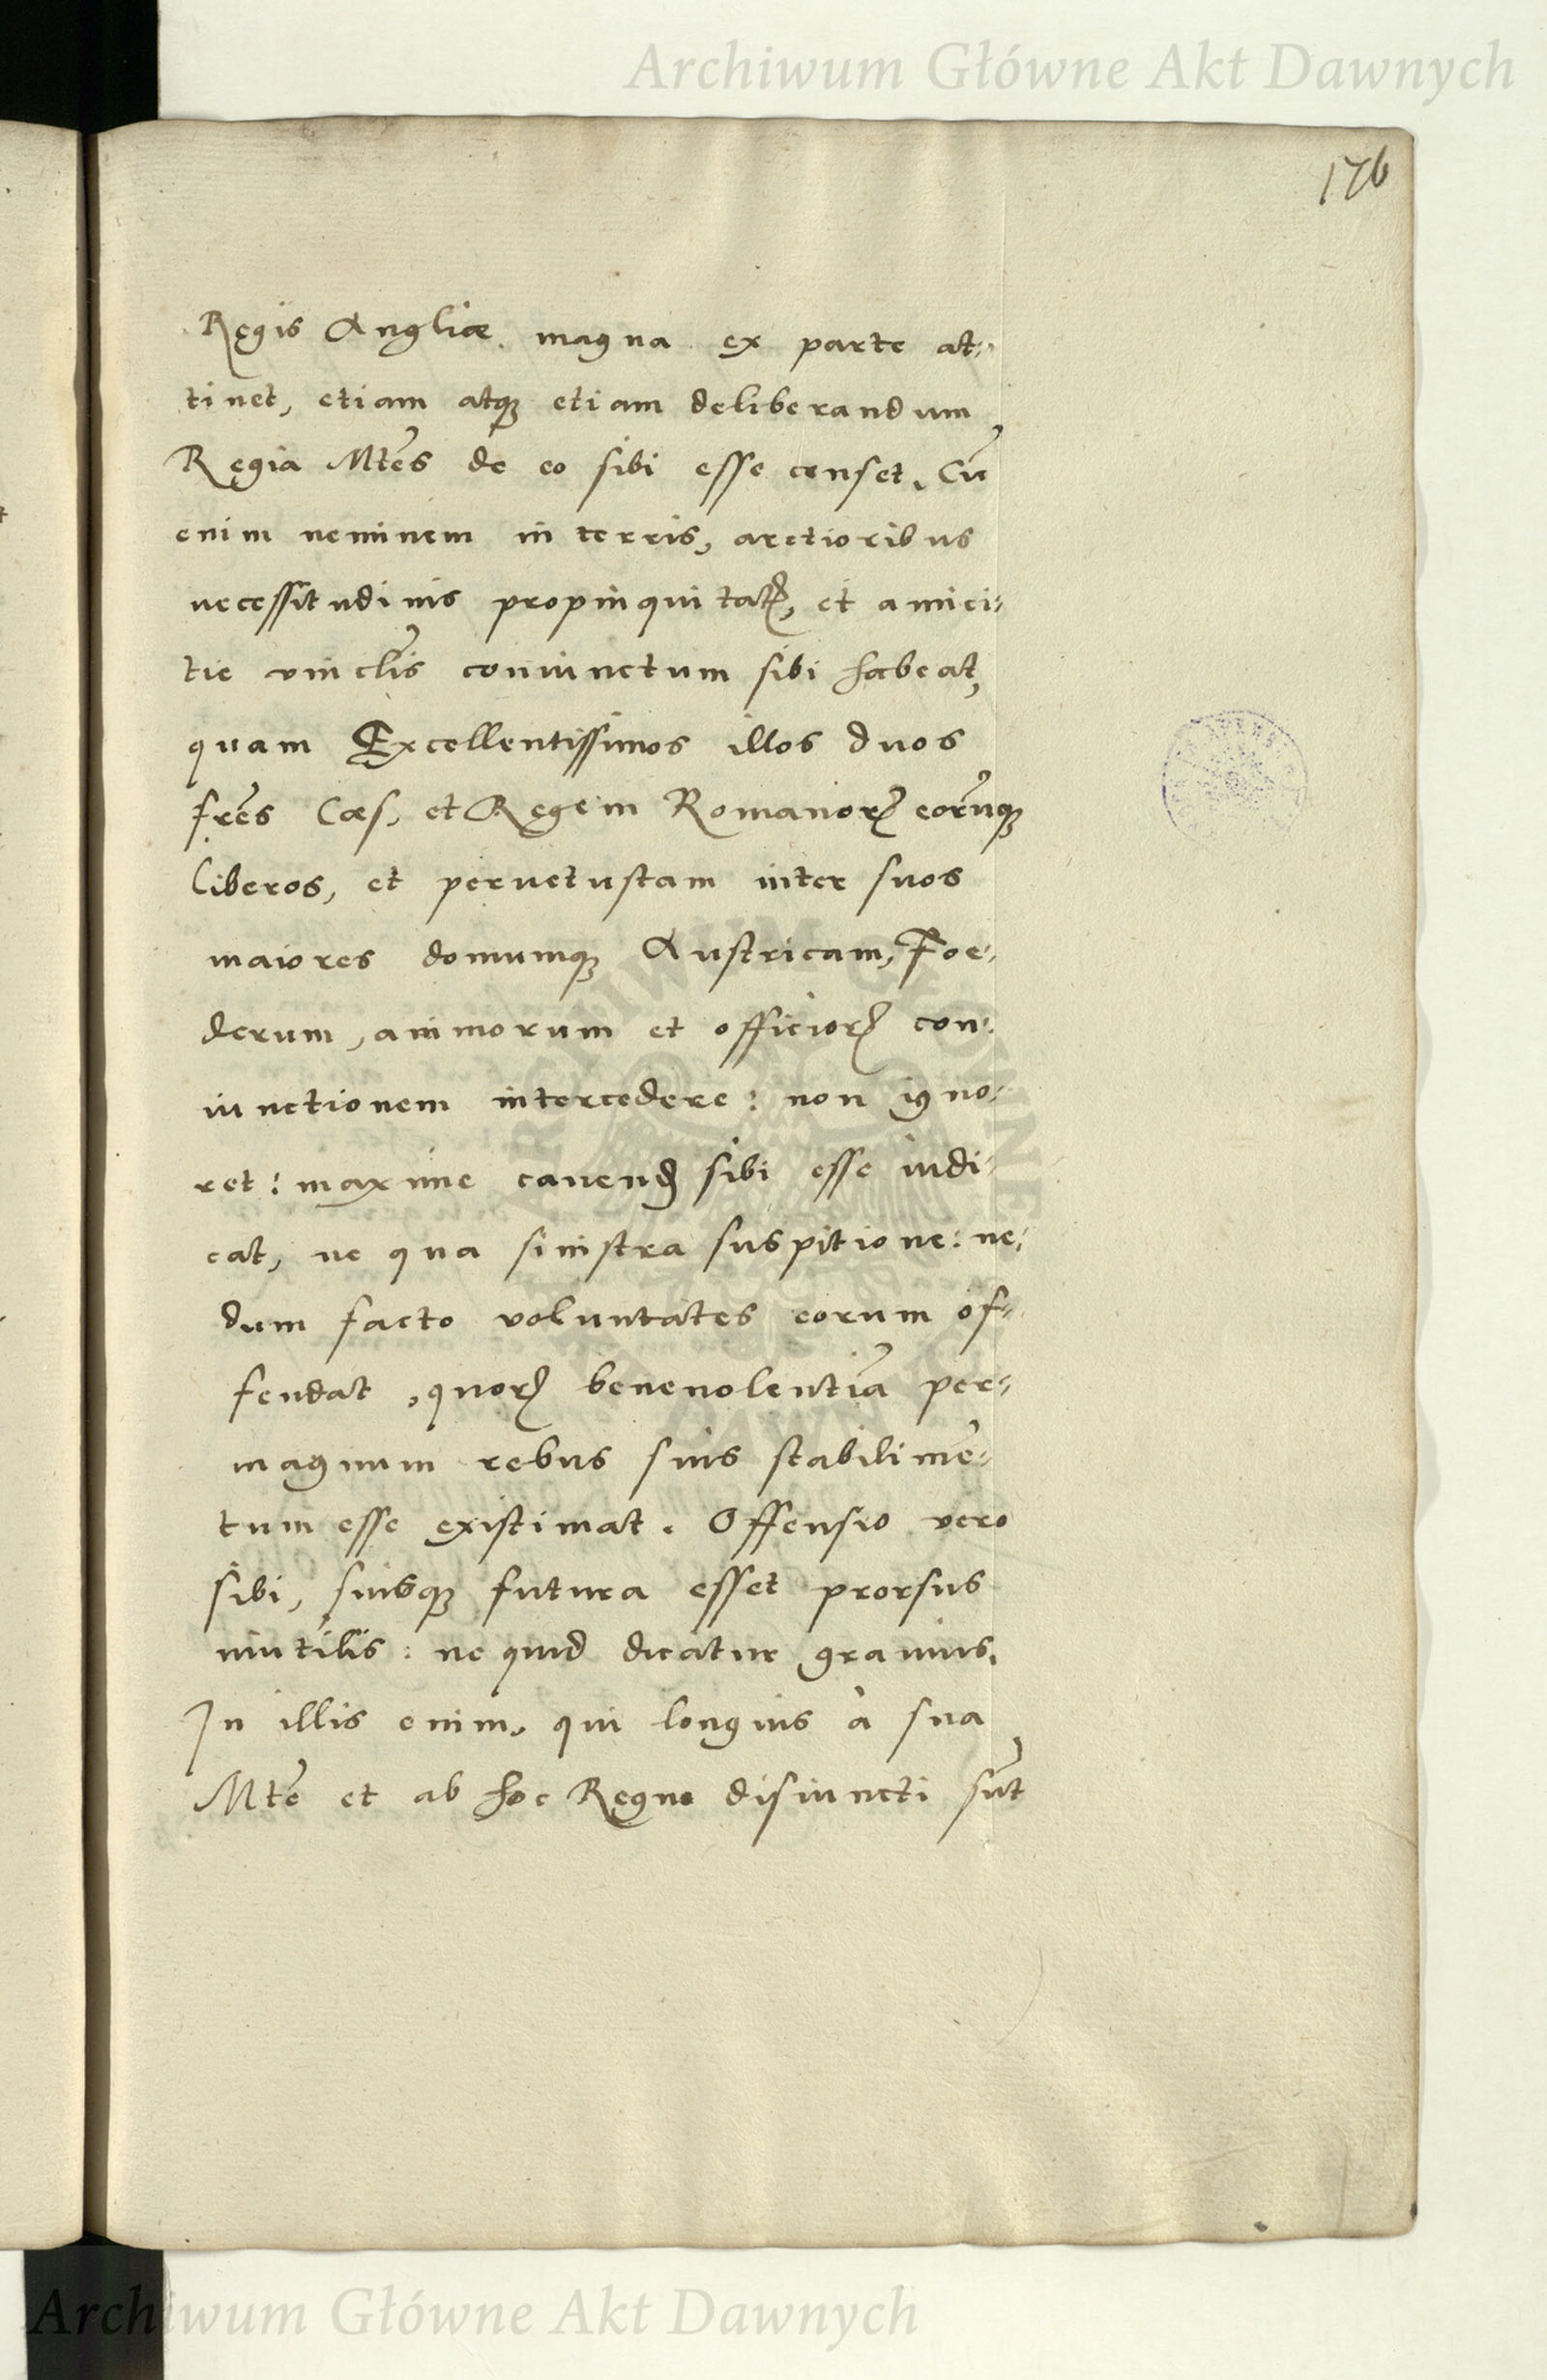 Archiwum Główne Akt Dawnych
176
Regis Angliæ magna ex parte at-
tinet, etiam atq; etiam deliberandum
Regia Mtēs de eo sibi esse censet. Cū
enim neminem in terris, arctioribus
necessitudinis propinquitatꝭ, et amici-
tie vinclīs coniunctum sibi habeat,
quam Excellentissimos illos duos
frēs Cæs, et Regem Romanorꝝ eorūnq;
liberos, et peruetustam inter suos
maiores domumq; Austricam, Foe-
derum, animorum et officiorꝝ con-
iunctionem intercedere: non igno-
ret: maxime cauendꝭ sibi esse iudi-
cat, ne qua sinistra suspitione: ne-
dum facto voluntates eorum of-
fendat, quorꝝ beneuolentiā per-
magnum rebus suis stabilimē-
tum esse existimat. Offensio vero
sibi, suisq; futura esset prorsus
inutilis: ne quid dicatur grauius.
In illis enim, qui longius à sua
Mtē et ab hoc Regno disiuncti sūt
Archiwum Główne Akt Dawnych